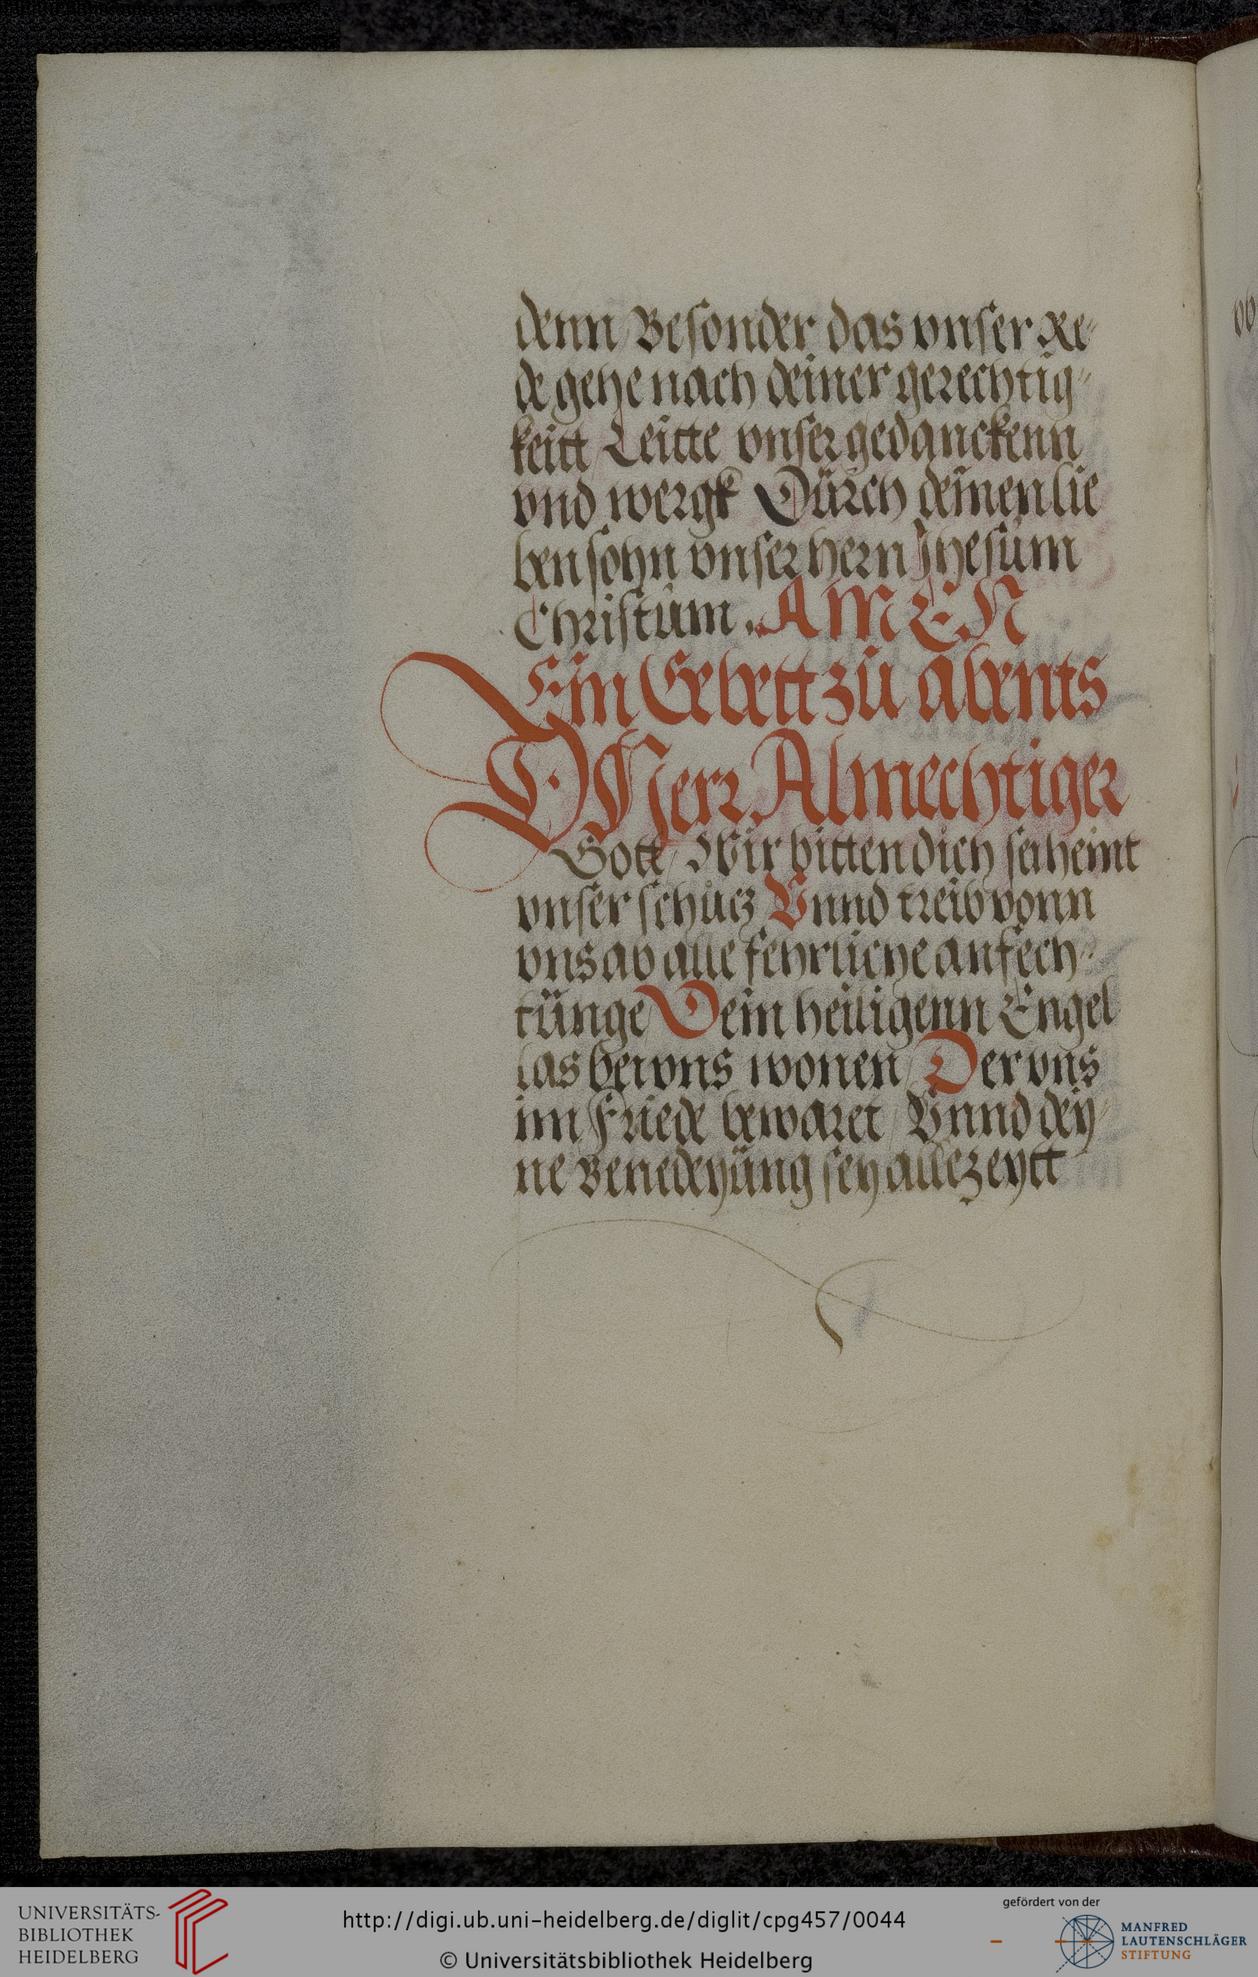 denn Besonder das vnser Re⸗
de gehe nach deiner gerechtig⸗
keitt / Leitte vnser gedanckenn
vnd wergk Dürch deinen lie
ben sohn vnser hern Jhesüm
Christüm. AMEN
Ein Gebett zü abents
O Herr Almechtiger
Gott / Wir bitten dich sei heint
vnser schücz Vnnd treib vonn
vns ab alle fehrliche anfech⸗
tünge Dein heiligenn Engel
las bei vns wonen / Der vns
im Friede bewaret / Vnnd dey⸗
ne Benedeyüng sey allezeytt
UNIVERSITÄTS-
BIBLIOTHEK
HEIDELBERG
http://digi.ub.uni-heidelberg.de/diglit/cpg457/0044
© Universitätsbibliothek Heidelberg
gefördert von der
MANFRED
LAUTENSCHLÄGER
STIFTUNG